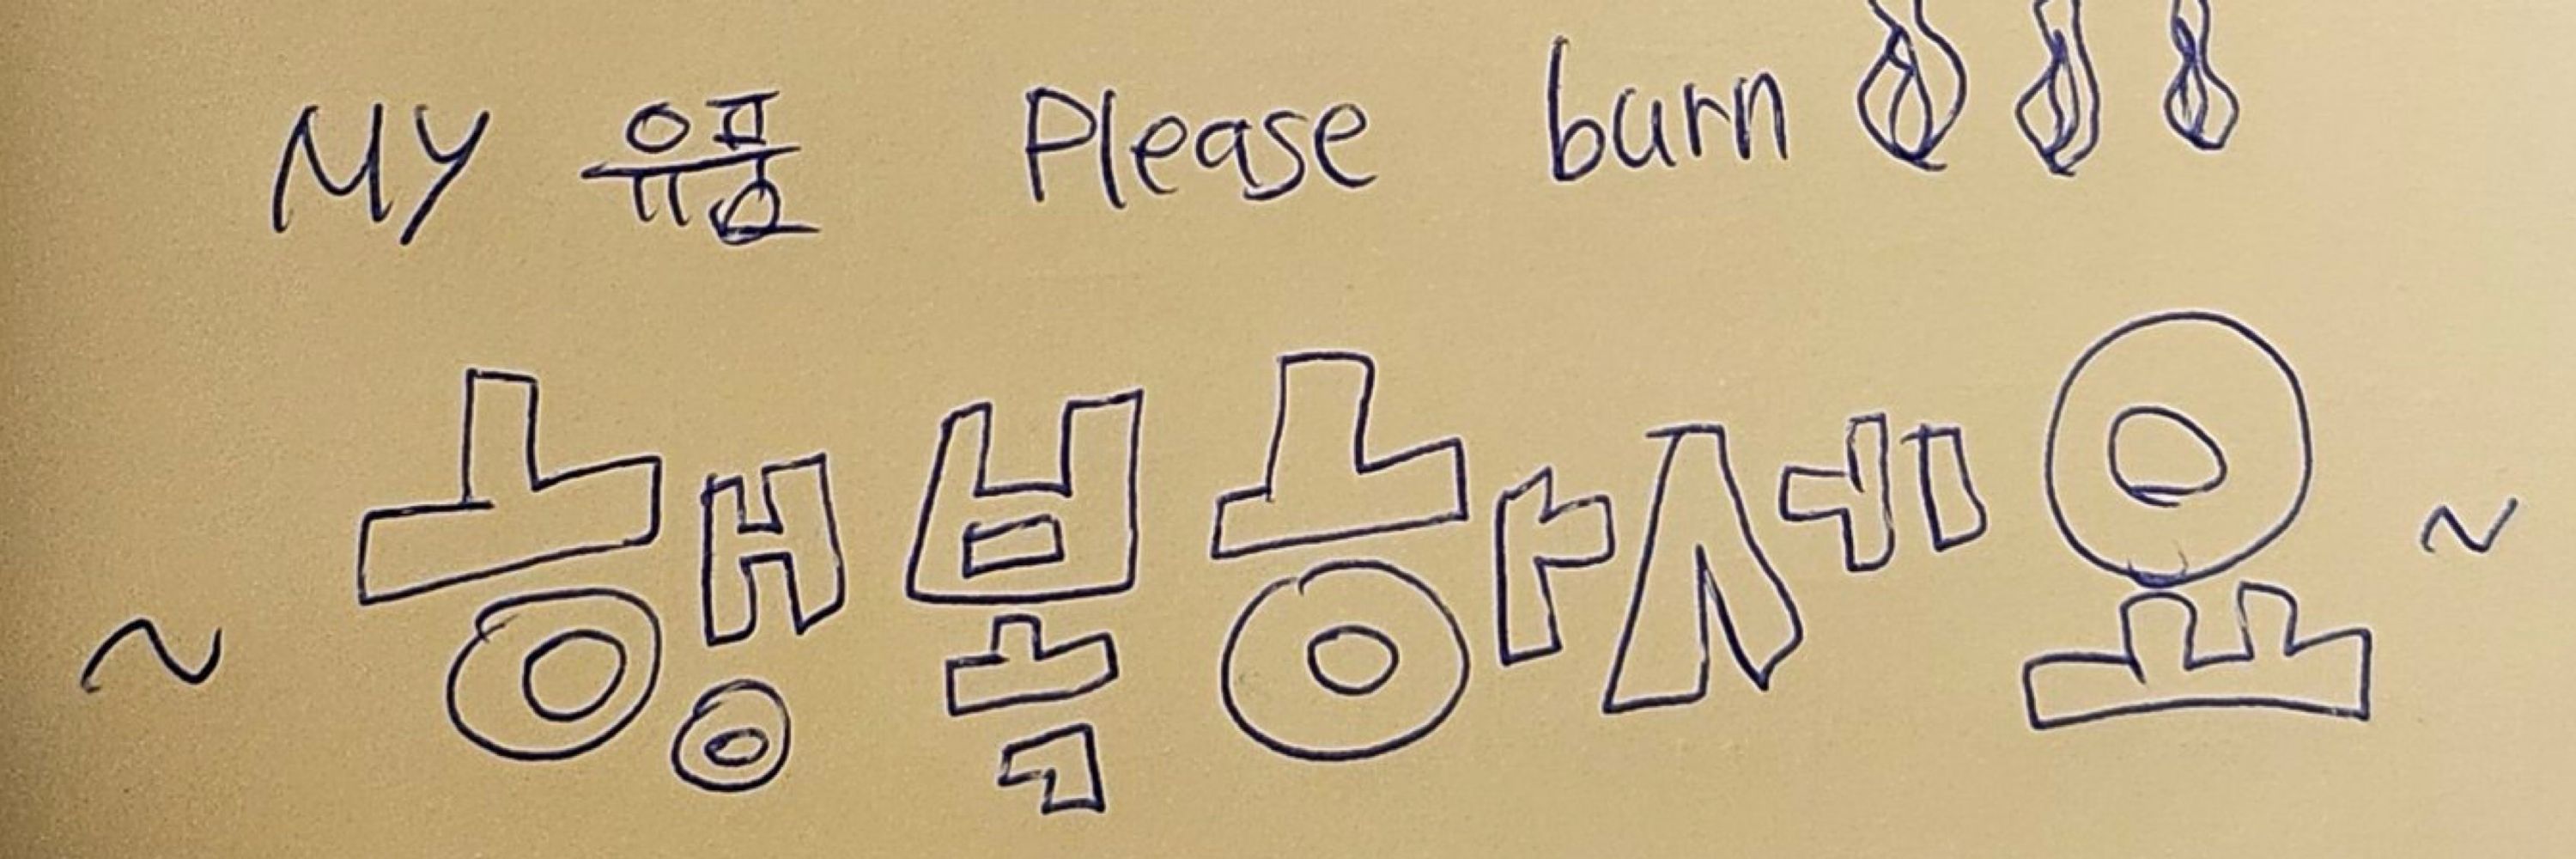 My 유품 Please burn
~ 행복하세요 ~